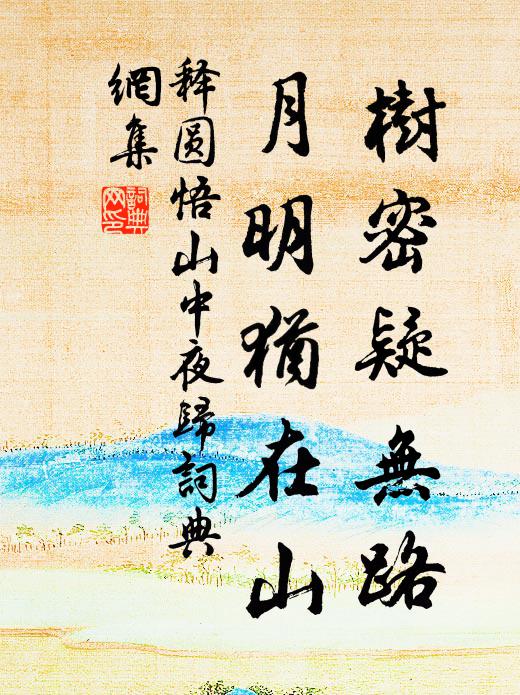 樹密疑無路
月明猶在山
释圓悟山中夜歸詞典
網集
詞典
網印